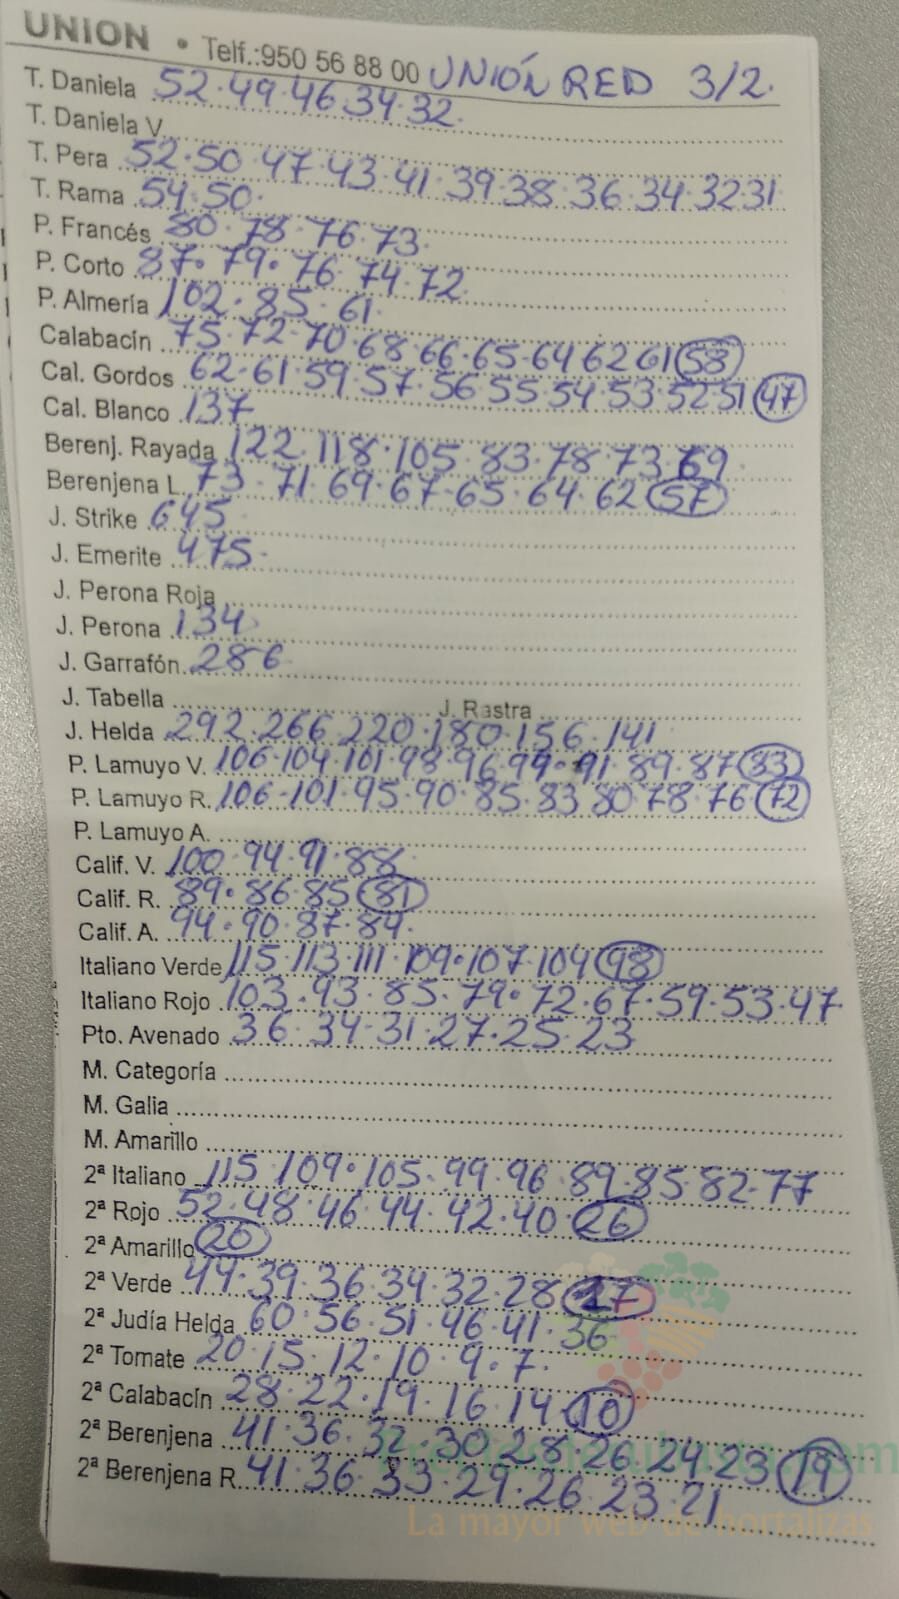 UNION • Telf.:950 56 88 00 UNIÓN RED 3/2.
T. Daniela 52·49·46·34·32
T. Daniela V.
T. Pera 52·50·47·43·41·39·38·36·34·32·31
T. Rama 54·50·
P. Francés 80·78·76·73·
P. Corto 87·79·76·74·72
P. Almería 102·85·61·
Calabacín 75·72·70·68·66·65·64 62 61 58
Cal. Gordos 62·61·59·57·56·55·54·53·52 51 47
Cal. Blanco 137
Berenj. Rayada 122 118·105·83·78·73·69
Berenjena L. 73·71·69·67·65·64·62 57
J. Strike 645
J. Emerite 475·
J. Perona Roja
J. Perona 134
J. Garrafón 286
J. Tabella J. Rastra
J. Helda 292·266 220·180·156·141
P. Lamuyo V. 106·104·101·98·96 94·91·89·87 83
P. Lamuyo R. 106·101·95·90·85·83 80·78·76 72
P. Lamuyo A.
Calif. V. 100·94·91·88
Calif. R. 89·86·85 81
Calif. A. 94·90·87·84·
Italiano Verde 115·113·111·109·107·104 98
Italiano Rojo 103·93·85·79·72·67·59·53·47
Pto. Avenado 36·34·31·27·25·23
M. Categoría
M. Galia
M. Amarillo
2ª Italiano 115·109·105·99·96·89·85·82·77
2ª Rojo 52·48·46·44·42·40·26
2ª Amarillo 20
2ª Verde 44·39·36·34·32·28 27
2ª Judía Helda 60·56·51·46·41·36
2ª Tomate 20·15·12·10·9·7·
2ª Calabacín 28·22·19·16·14 10
2ª Berenjena 41·36·32·30·28·26 24 23 19
2ª Berenjena R. 41·36·33·29·26·23·21
La mayor web de hortalizas